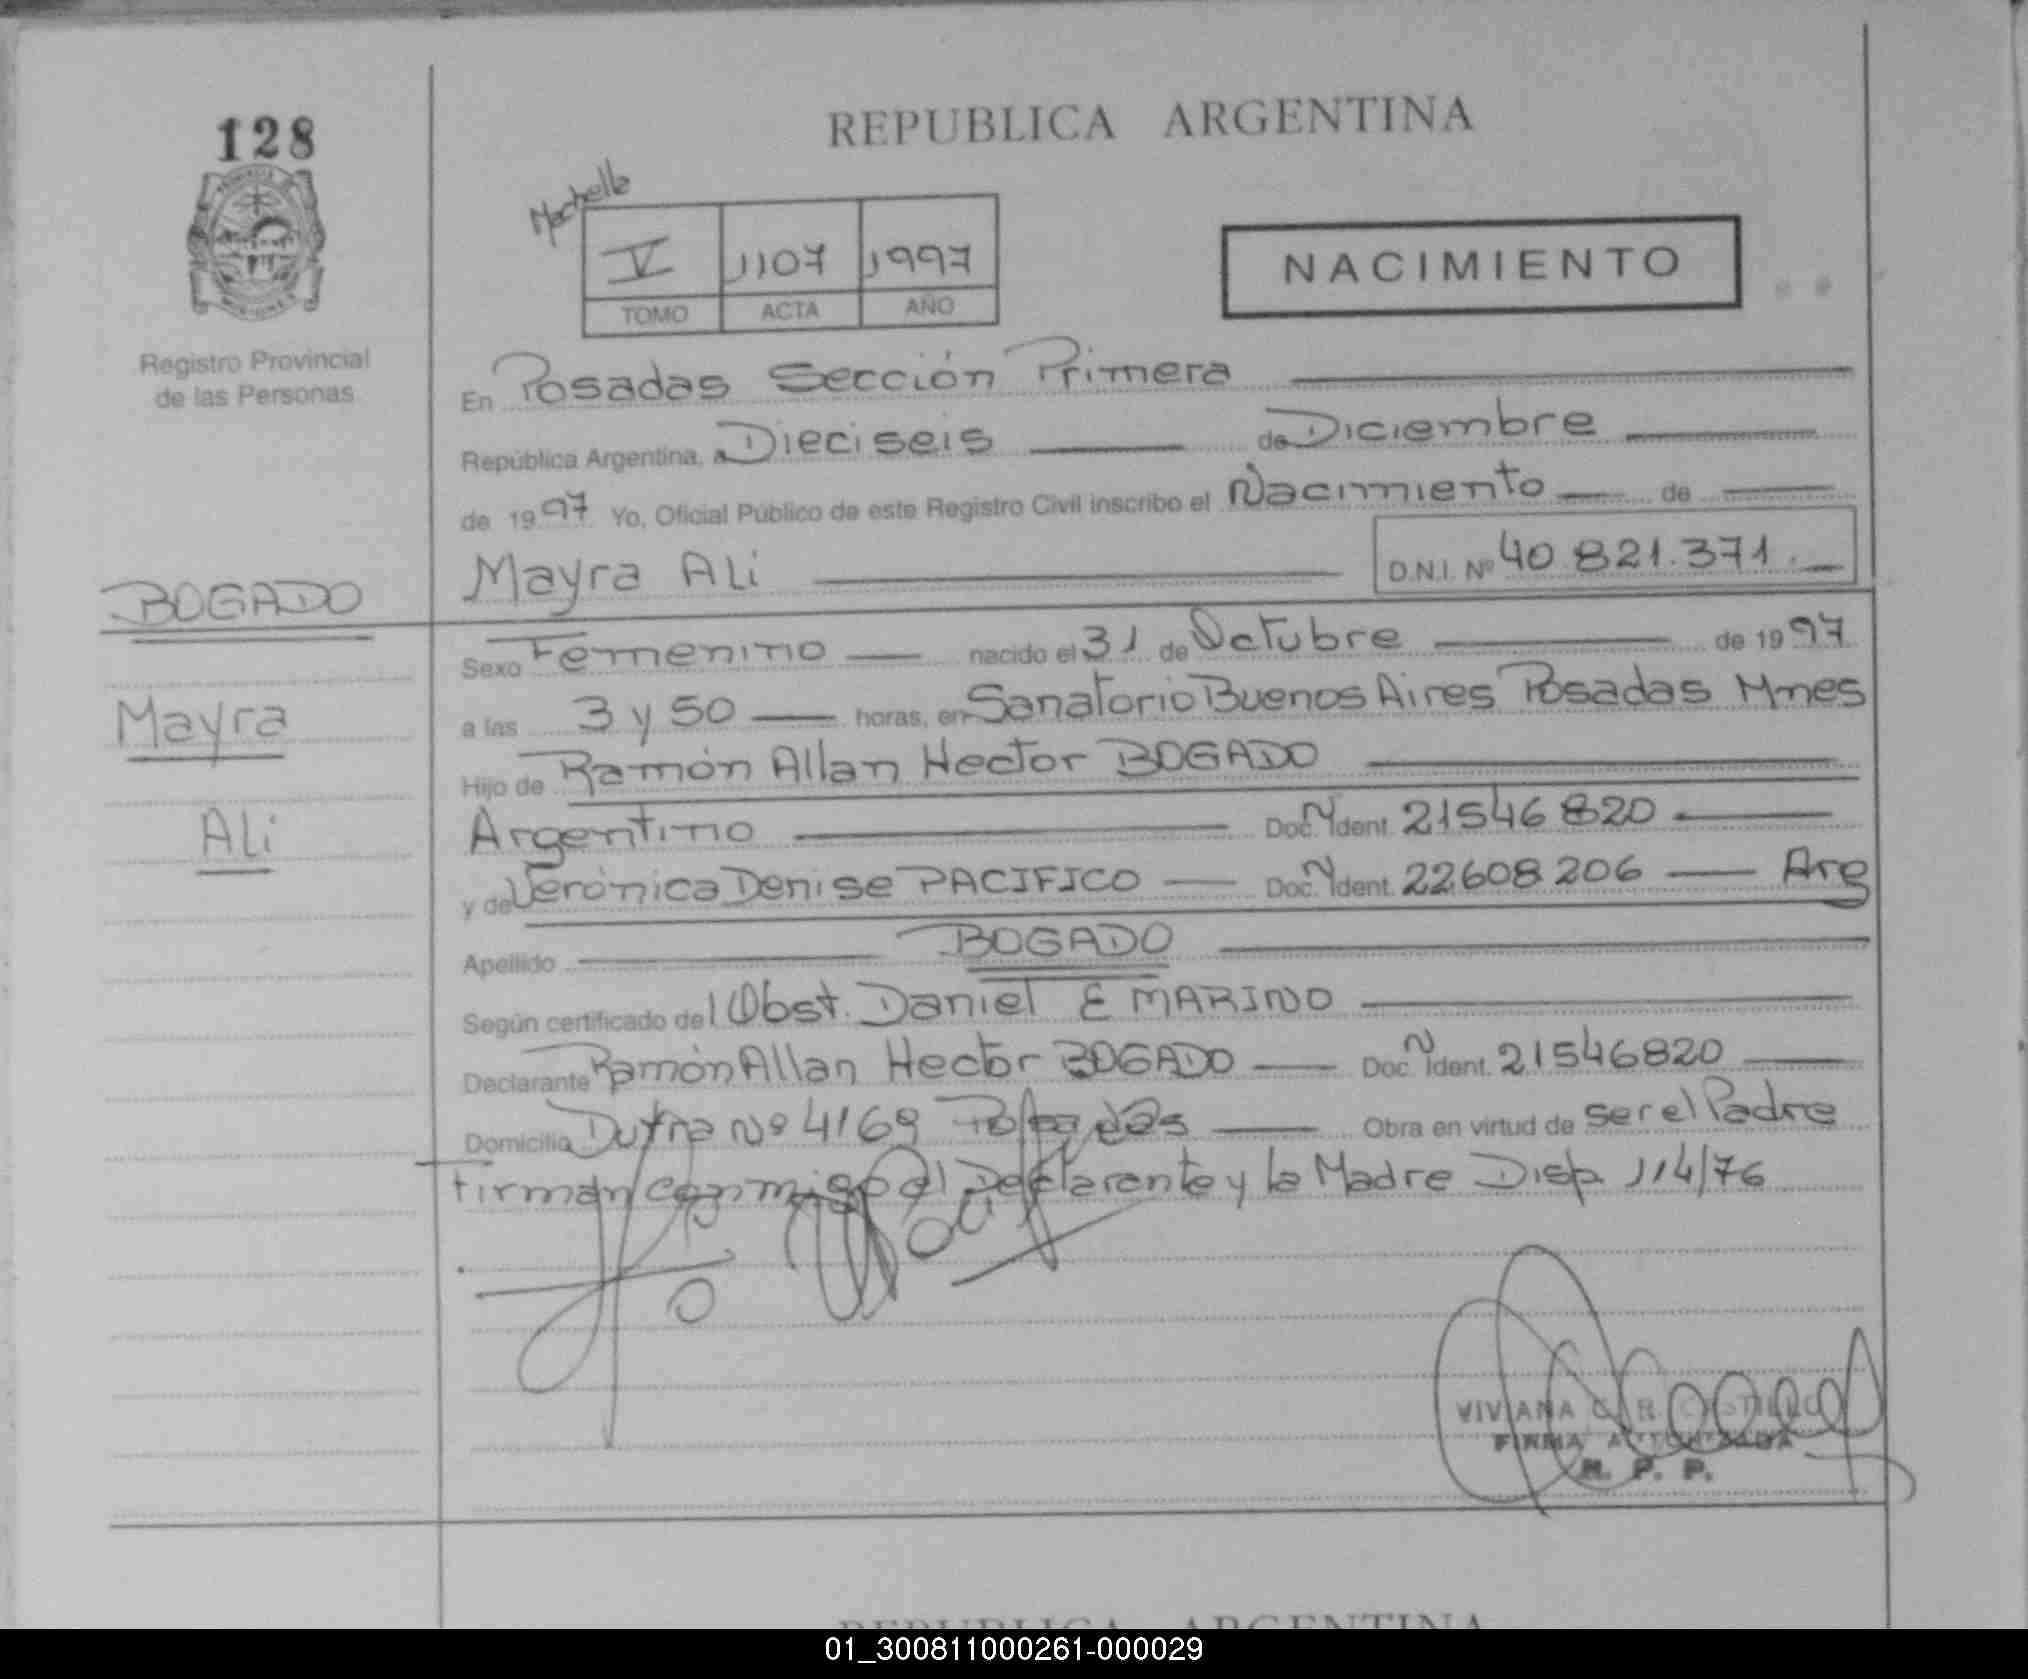 128
REPUBLICA ARGENTINA
V 1107 1997
TOMO ACTA AÑO
NACIMIENTO
Registro Provincial
de las Personas
En Posadas Sección Primera
República Argentina, a Dieciseis de Diciembre
de 1997 Yo, Oficial Público de este Registro Civil inscribo el Nacimiento de
Mayra Ali D.N.I. Nº 40.821.371.
BOGADO
Mayra
Ali
Sexo Femenino nacido el 31 de Octubre de 1997
a las 3 y 50 horas, en Sanatorio Buenos Aires Posadas Mnes
Hijo de Ramón Allan Hector BOGADO
Argentino Doc. Ident. 21546820
y de Verónica Denise PACIFICO Doc. Ident. 22608206 Arg
Apellido BOGADO
Según certificado del Obst. Daniel E MARINO
Declarante Ramón Allan Hector BOGADO Doc. Ident. 21546820
Domicilio Dutra Nº 4169 Posadas Obra en virtud de ser el Padre
Firman conmigo el Declarante y la Madre Disp. 114/76
VIVIANA
FIRMA AUTORIZADA
R. P. P.
REPUBLICA ARGENTINA
01_300811000261-000029